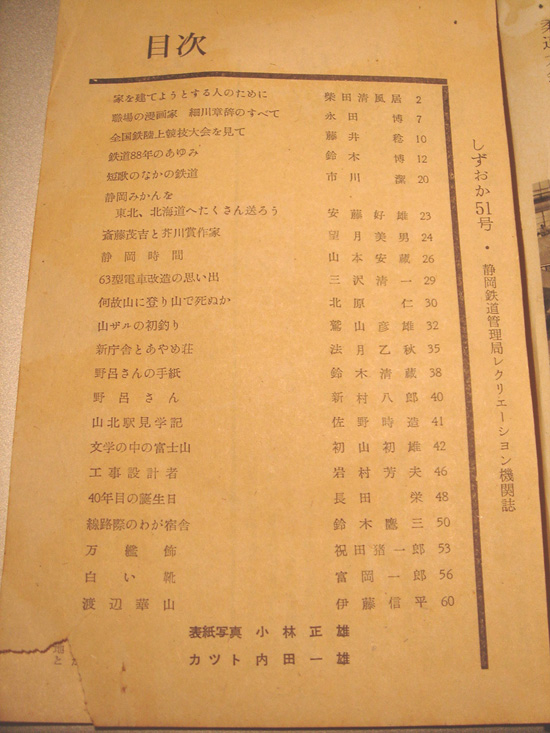 目次
家を建てようとする人のために 柴田清風居 2
職場の漫画家 細川章蔀のすべて 永田博 7
全国鉄陸上競技大会を見て 藤井稔 10
鉄道88年のあゆみ 鈴木博 12
短歌のなかの鉄道 市川潔 20
静岡みかんを
東北、北海道へたくさん送ろう 安藤好雄 23
斎藤茂吉と芥川賞作家 望月美男 24
静岡時間 山本安蔵 26
63型電車改造の思い出 三沢清一 29
何故山に登り山で死ぬか 北原仁 30
山ザルの初釣り 鷲山彦雄 32
新庁舎とあやめ荘 法月乙秋 35
野呂さんの手紙 鈴木清蔵 38
野呂さん 新村八郎 40
山北駅見学記 佐野時造 41
文学の中の富士山 初山初雄 42
工事設計者 岩村芳夫 46
40年目の誕生日 長田栄 48
線路際のわが宿舎 鈴木鷹三 50
万艦飾 祝田猪一郎 53
白い靴 富岡一郎 56
渡辺華山 伊藤信平 60
表紙写真 小林正雄
カット 内田一雄
しずおか51号・静岡鉄道管理局レクリエーション機関誌